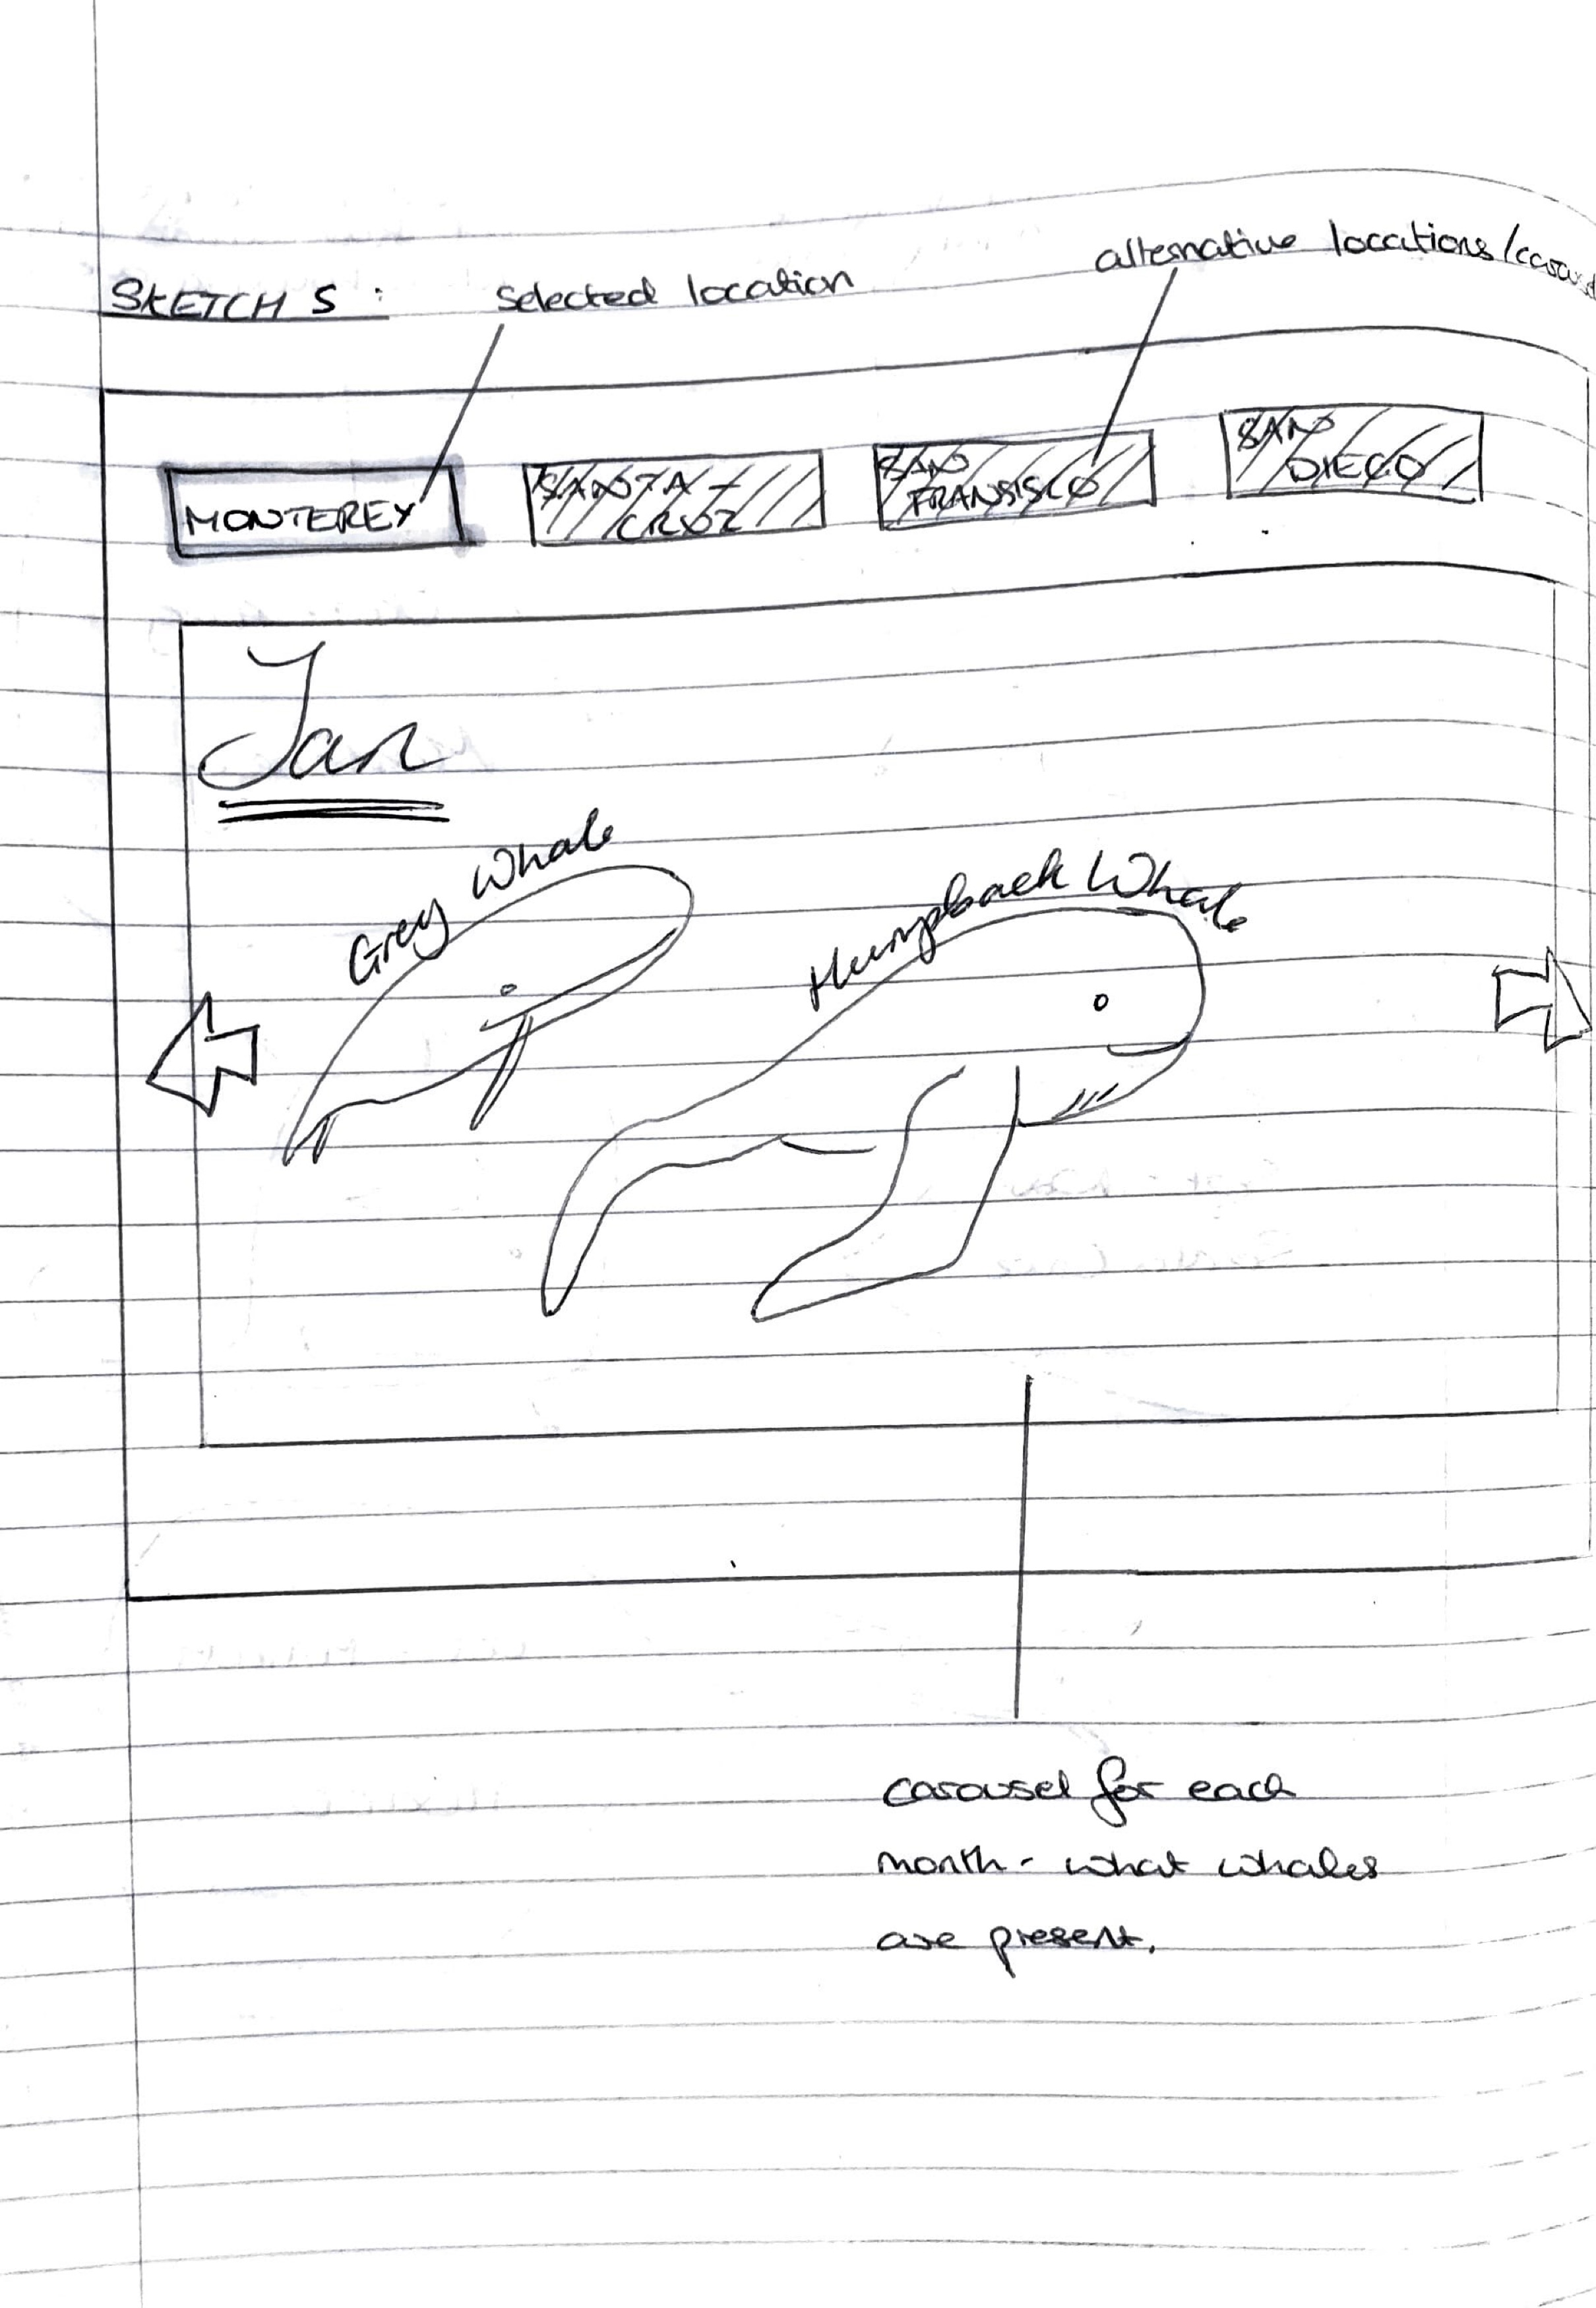 SKETCH 5 :
selected location
alternative locations/
MONTEREY
SANTA-
CRUZ
SAN
FRANSISCO
SAN
DIEGO
Jan
Grey Whale
Humpback Whale
carousel for each
month - what whales
are present.